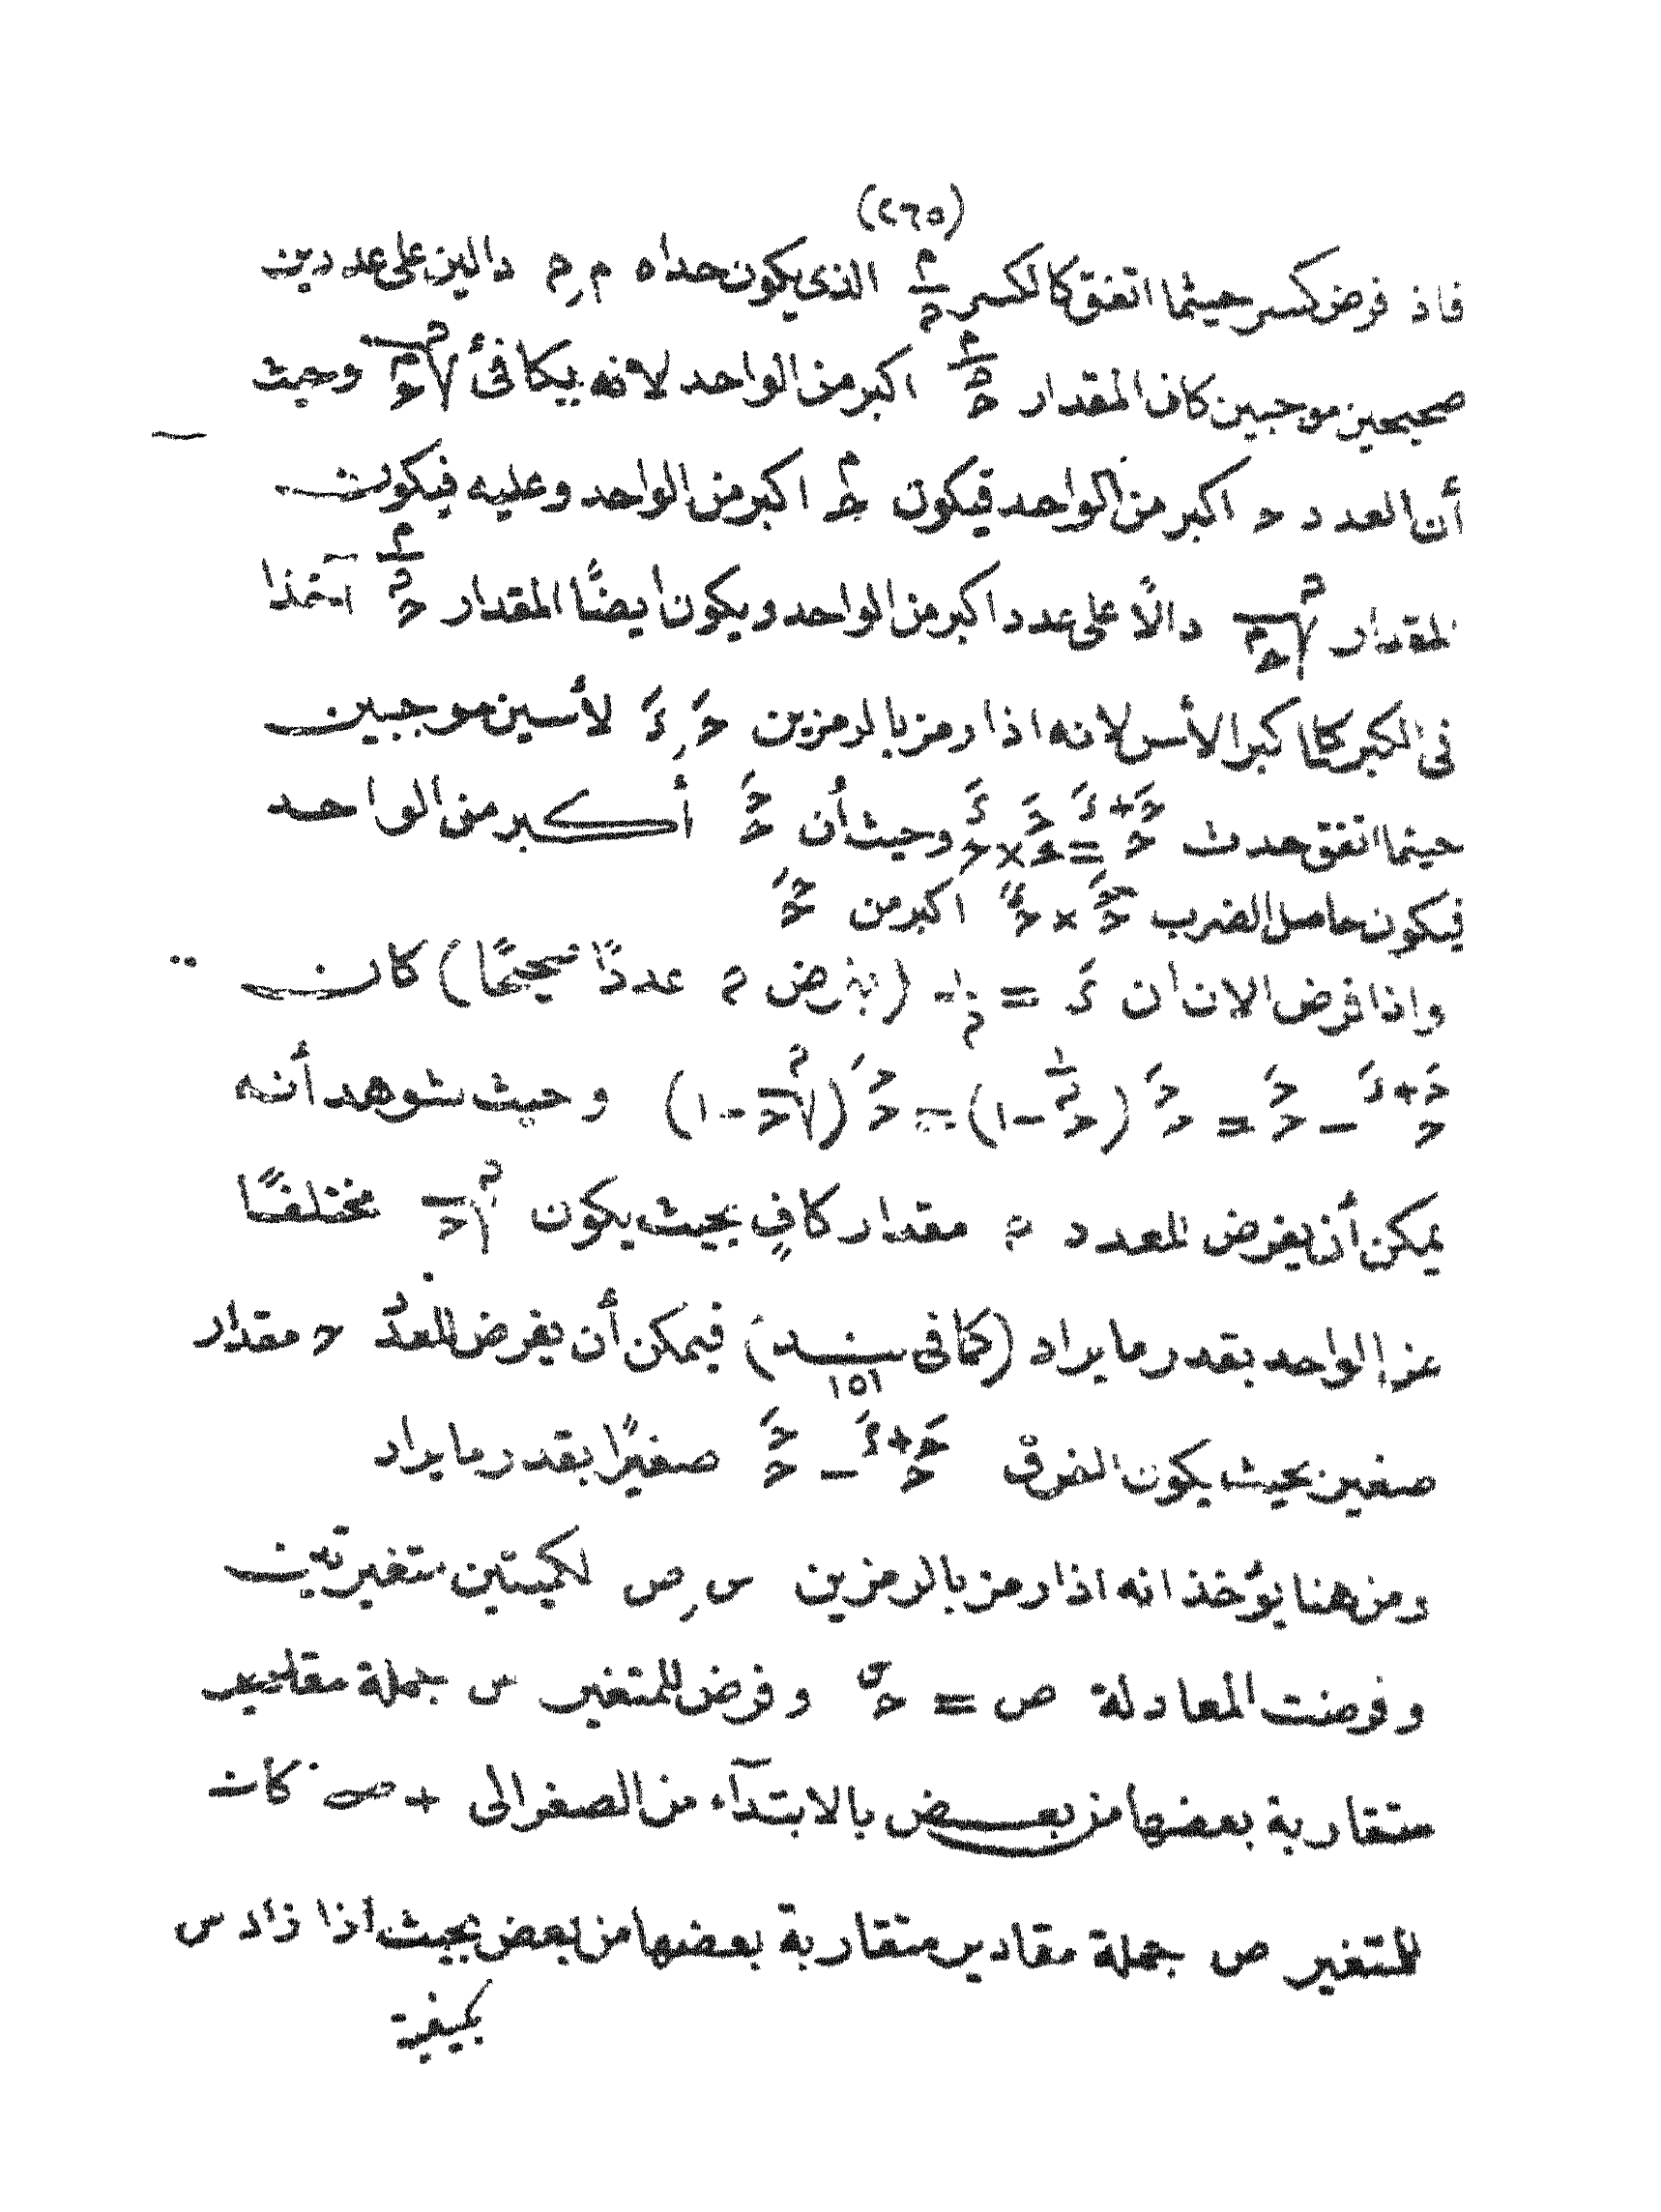 (٢٦٥)
فاذ فرض كسر حيثما اتفق كالكسر م/م الذى يكون حداه م ر م دالين على عددين
صحيحين موجبين كان المقدار حـ^(م/م) اكبر من الواحد لانه يكافئ √حـ^م وحيث
أن العدد حـ اكبر من الواحد فيكون حـ^م اكبر من الواحد وعليه فيكون
المقدار √حـ^م دالًا على عدد اكبر من الواحد ويكون ايضًا المقدار حـ^(م/م) آخذا
فى الكبر كلما كبر الأس لانه اذا رمز بالرمزين حَـ ر ءَ لأسين موجبين
حيثما اتفق حدث حـ^(حَـ+ءَ) = حـ^حَـ × حـ^ءَ وحيث أن حـ^حَـ أكبر من الواحد
فيكون حاصل الضرب حـ^حَـ × حـ^ءَ اكبر من حـ^حَـ
واذا فرض الان ان ءَ = ١/م (بفرض م عددًا صحيحًا) كان
حـ^(حَـ+ءَ) − حـ^حَـ = حـ^حَـ (حـ^(١/م) − ١) = حـ^حَـ (√حـ − ١) وحيث شوهد أنه
يمكن أن يفرض للعدد م مقدار كافٍ بحيث يكون √حـ مختلفًا
عن الواحد بقدر ما يراد (كما فى بند ١٥١) فيمكن أن يفرض للعدد حـ مقدار
صغير بحيث يكون الفرق حـ^(حَـ+ءَ) − حـ^حَـ صغيرًا بقدر ما يراد
ومن هنا يؤخذ انه اذا رمز بالرمزين س ر ص لكميتين متغيرتين
وفرضت المعادلة ص = حـ^س وفرض للمتغير س جملة مقادير
متقاربة بعضها من بعض بالابتدآء من الصفر الى + ∞ كان
للمتغير ص جملة مقادير متقاربة بعضها من بعض بحيث اذا زاد س
بكيفية